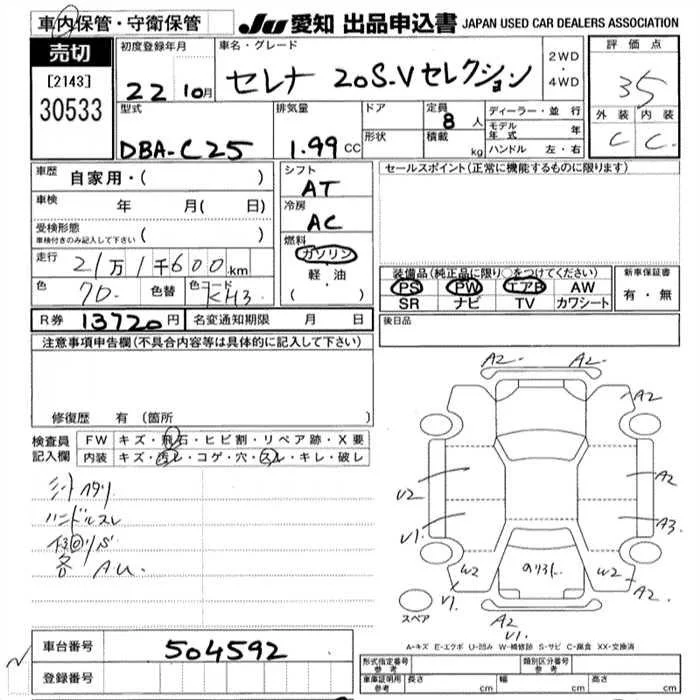 車内保管・守衛保管
JU 愛知 出品申込書 JAPAN USED CAR DEALERS ASSOCIATION
売切
[2143]
30533
初度登録年月
22 10月
車名・グレード
セレナ 20S-Vセレクション
2WD
・
4WD
評価点
35
外装 内装
C C
型式
DBA-C25
排気量
1.99 CC
ドア
形状
定員
8 人
積載
kg
ディーラー・並行
モデル年式 年
ハンドル 左・右
車歴
自家用・( )
車検
年 月( 日)
受検形態
車検付きのみ記入して下さい ( )
走行
21万1千600km
色
色替
色コード
KH3
シフト
AT
冷房
AC
燃料
ガソリン
軽油
( ・ )
セールスポイント(正常に機能するものに限ります)
装備品(純正品に限り○をつけてください)
PS PW エアB AW
SR ナビ TV カワシート
新車保証書
有・無
R券 13720円 名変通知期限 月 日
後日品
注意事項申告欄(不具合内容等は具体的に記入して下さい)
修復歴 有(箇所
検査員
記入欄
FW キズ・飛石・ヒビ割・リペア跡・X要
内装 キズ・汚レ・コゲ・穴・スレ・キレ・破レ
ハンドルスレ
各 AU.
A2 A2
A2 A2
U2 A2
V1 A3
W2 W2
V1 A2
A2
V1
スペア
A-キズ E-エクボ U-凹み W-補修跡 S-サビ C-腐食 XX-交換済
車台番号
504592
登録番号
形式指定番号
参考
類別区分番号
参考
車庫証明用
参考
長さ cm 幅 cm 高さ cm